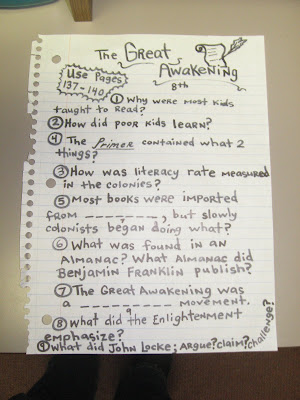 The Great
Awakening
8th
Use Pages
137-140
① Why were most kids
taught to Read?
② How did poor kids learn?
④ The Primer contained what 2
things?
③ How was literacy rate measured
in the colonies?
⑤ Most books were imported
from _ _ _ _ _ _ _, but slowly
colonists began doing what?
⑥ What was found in an
Almanac? What Almanac did
Benjamin Franklin publish?
⑦ The Great Awakening was
a _ _ _ _ _ _ _ _ _ movement.
9
⑧ What did the Enlightenment
emphasize?
⑨ What did John Locke; Argue? Claim? challenge?